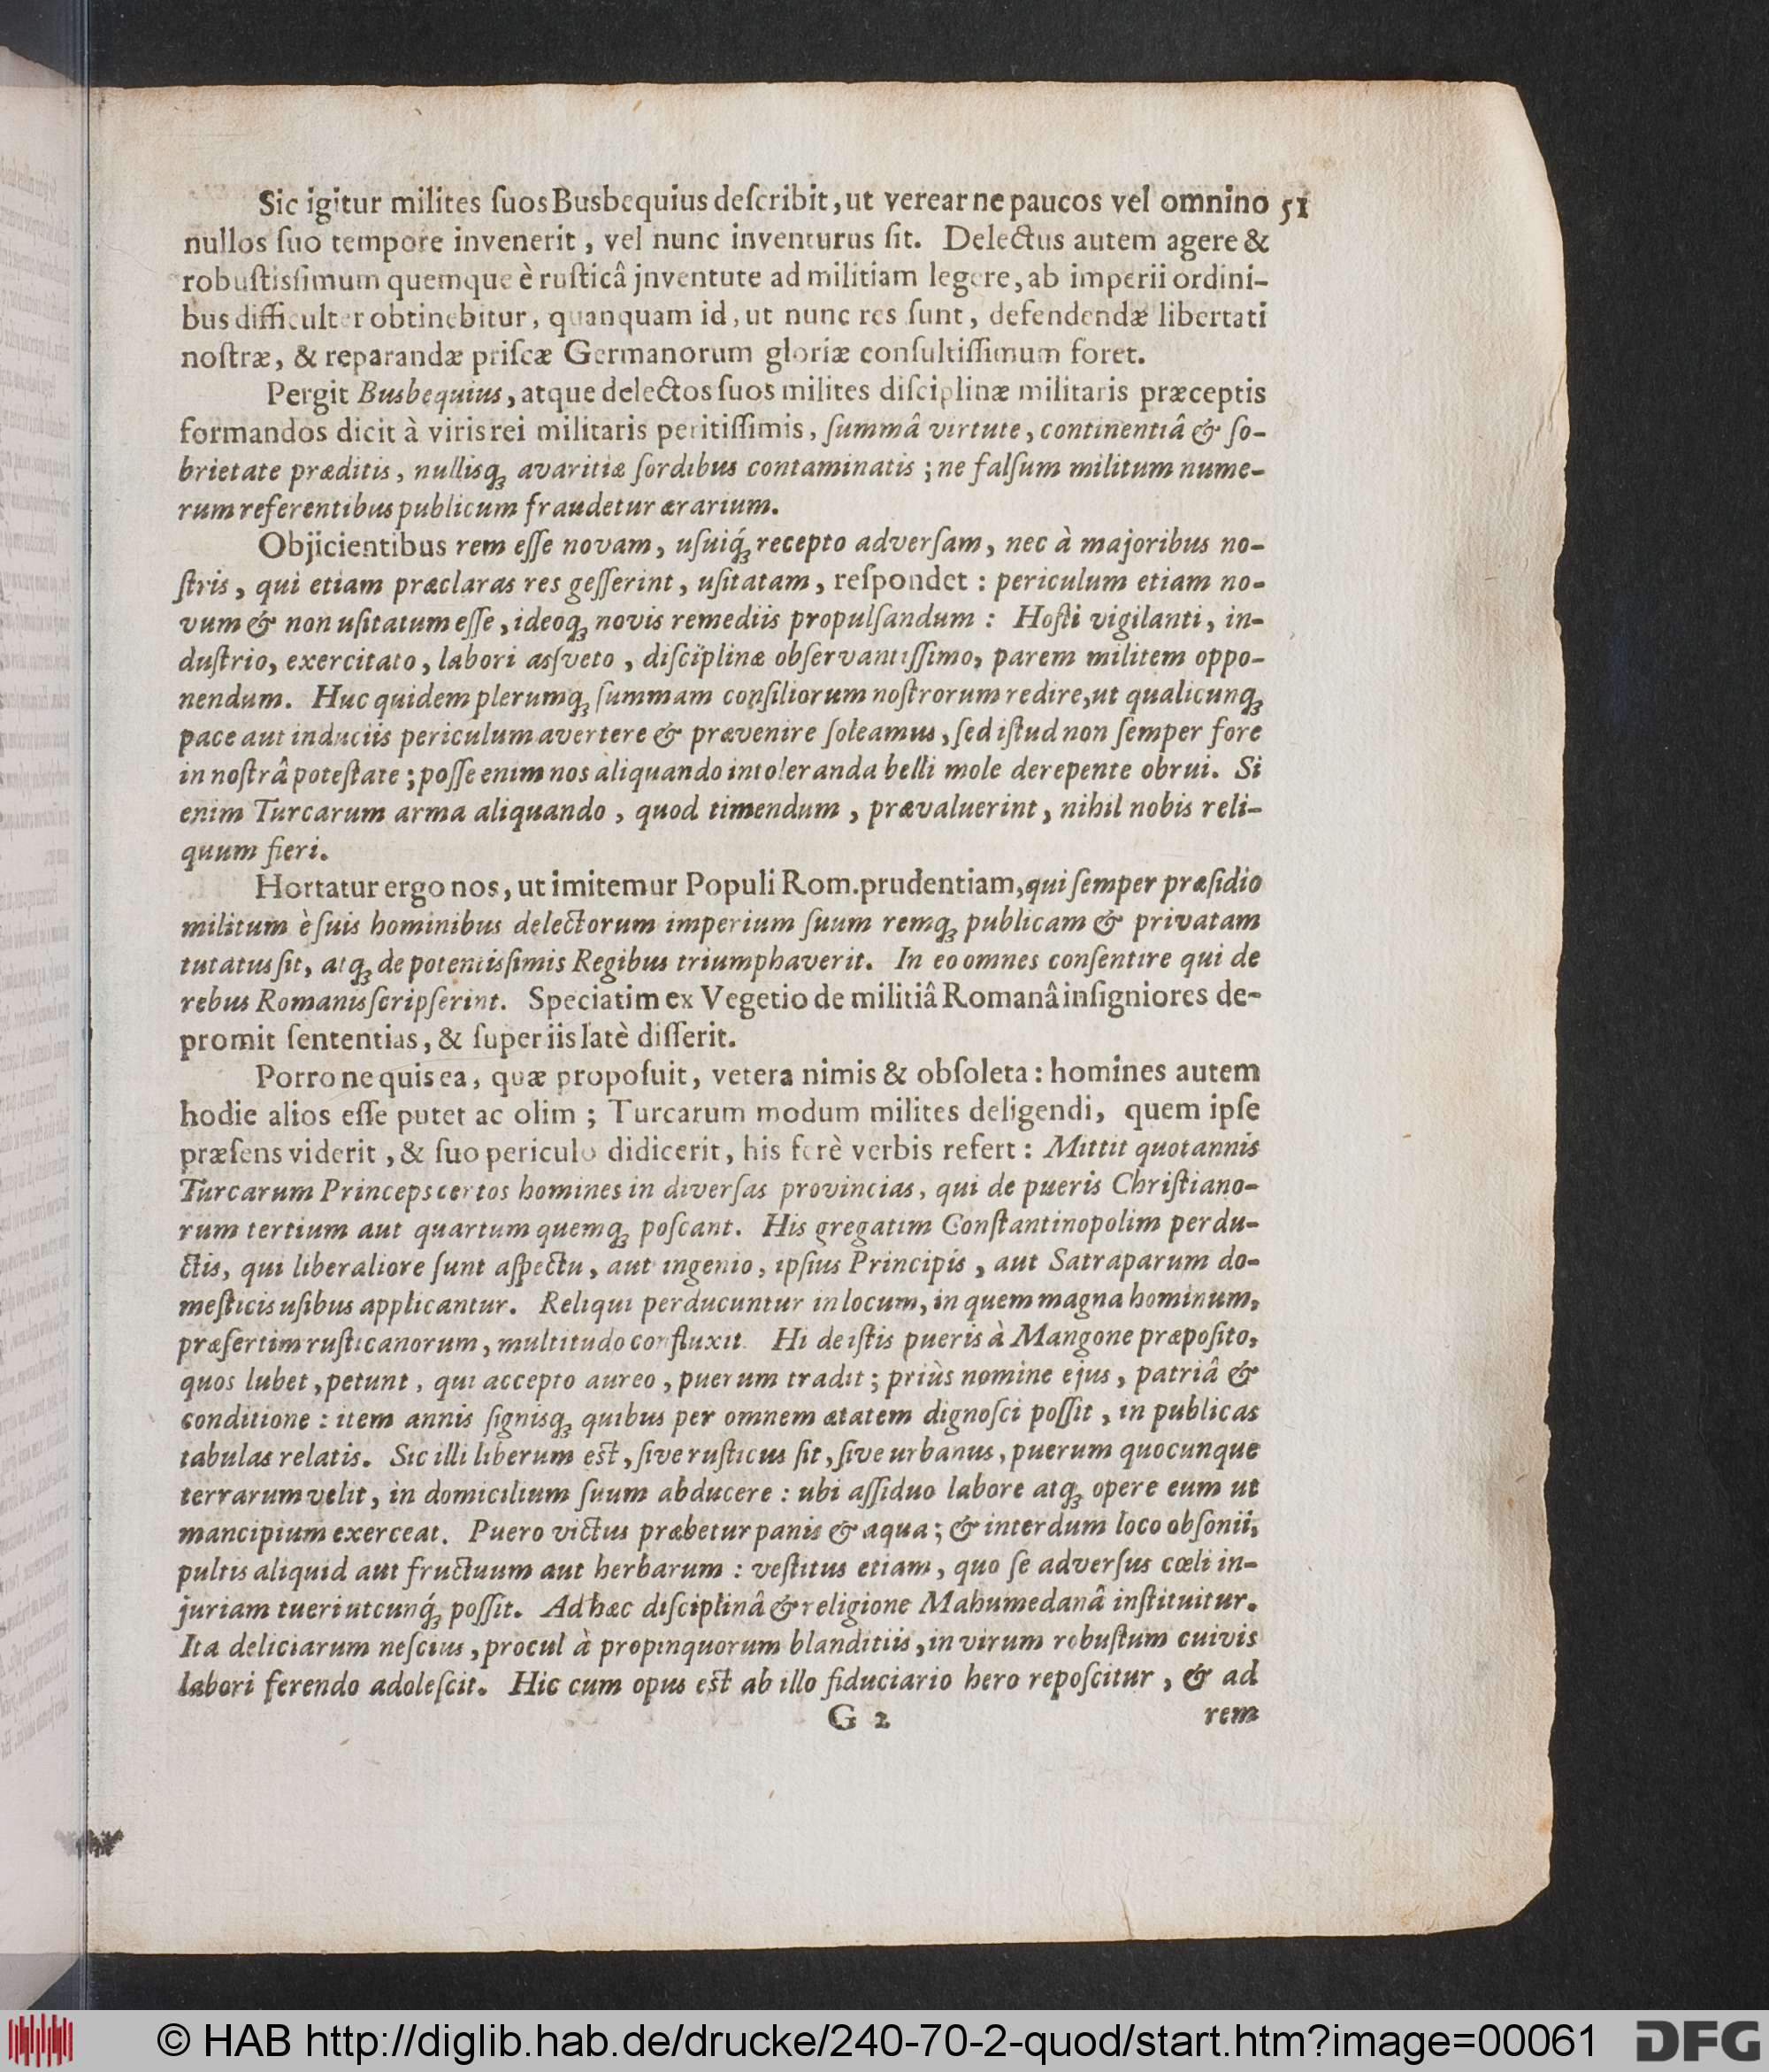 Sic igitur milites ſuos Busbequius deſcribit, ut verear ne paucos vel omnino 51
nullos ſuo tempore invenerit, vel nunc inventurus ſit. Delectus autem agere &
robuſtisſimum quemque è ruſticâ jnventute ad militiam legere, ab imperii ordini-
bus difficulter obtinebitur, quanquam id, ut nunc res ſunt, defendendæ libertati
noſtræ, & reparandæ priſcæ Germanorum gloriæ conſultiſſimum foret.
Pergit Busbequius, atque delectos ſuos milites diſciplinæ militaris præceptis
formandos dicit à viris rei militaris peritiſſimis, ſummâ virtute, continentiâ & ſo-
brietate præditis, nullisq́ꝫ avaritiæ ſordibus contaminatis; ne falſum militum nume-
rum referentibus publicum fraudetur ærarium.
Objicientibus rem eſſe novam, uſuiq́ꝫ recepto adverſam, nec à majoribus no-
ſtris, qui etiam præclaras res geſſerint, uſitatam, reſpondet: periculum etiam no-
vum & non uſitatum eſſe, ideoqꝫ novis remediis propulſandum: Hoſti vigilanti, in-
duſtrio, exercitato, labori asſveto, diſciplinæ obſervantiſſimo, parem militem oppo-
nendum. Huc quidem plerumqꝫ ſummam conſiliorum noſtrorum redire, ut qualicunqꝫ
pace aut induciis periculum avertere & prævenire ſoleamus, ſed iſtud non ſemper fore
in noſtrâ poteſtate; poſſe enim nos aliquando intoleranda belli mole derepente obrui. Si
enim Turcarum arma aliquando, quod timendum, prævaluerint, nihil nobis reli-
quum fieri.
Hortatur ergo nos, ut imitemur Populi Rom. prudentiam, qui ſemper præſidio
militum è ſuis hominibus delectorum imperium ſuum remqꝫ publicam & privatam
tutatus ſit, atqꝫ de potentisſimis Regibus triumphaverit. In eo omnes conſentire qui de
rebus Romanis ſcripſerint. Speciatim ex Vegetio de militiâ Romanâ inſigniores de-
promit ſententias, & ſuper iis latè diſſerit.
Porro ne quis ea, quæ propoſuit, vetera nimis & obſoleta: homines autem
hodie alios eſſe putet ac olim; Turcarum modum milites deligendi, quem ipſe
præſens viderit, & ſuo periculo didicerit, his ferè verbis refert: Mittit quotannis
Turcarum Princeps certos homines in diverſas provincias, qui de pueris Chriſtiano-
rum tertium aut quartum quemqꝫ poſcant. His gregatim Conſtantinopolim perdu-
ctis, qui liberaliore ſunt aſpectu, aut ingenio, ipſius Principis, aut Satraparum do-
meſticis uſibus applicantur. Reliqui perducuntur in locum, in quem magna hominum,
præſertim ruſticanorum, multitudo confluxit. Hi de iſtis pueris à Mangone præpoſito,
quos lubet, petunt, qui accepto aureo, puerum tradit; priùs nomine ejus, patriâ &
conditione: item annis ſignisqꝫ quibus per omnem ætatem dignoſci poſſit, in publicas
tabulas relatis. Sic illi liberum est, ſive ruſticus ſit, ſive urbanus, puerum quocunque
terrarum velit, in domicilium ſuum abducere: ubi aſſiduo labore atqꝫ opere eum ut
mancipium exerceat. Puero victus præbetur panis & aqua; & interdum loco obſonii,
pultis aliquid aut fructuum aut herbarum: veſtitus etiam, quo ſe adverſus cœli in-
juriam tueri utcunq́ꝫ poſſit. Ad hæc diſciplinâ & religione Mahumedanâ inſtituitur.
Ita deliciarum neſcius, procul à propinquorum blanditiis, in virum robuſtum cuivis
labori ferendo adoleſcit. Hic cum opus est ab illo fiduciario hero repoſcitur, & ad
G 2 rem
© HAB http://diglib.hab.de/drucke/240-70-2-quod/start.htm?image=00061 DFG